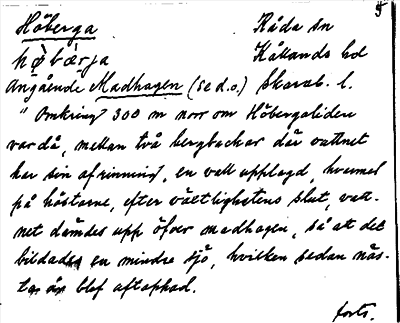 Höberga Råda sn
hø̀bærja Kållands hd
Angående Madhagen (se d.o.) Skarab. l.
"Omkring 300 m norr om Höbergaliden
var då, mellan två bergbackar där vattnet
har sin afrinning, en vall upplagd, hvarmed
på höstarne, efter växtlighetens slut, vatt-
net dämdes upp öfver madhagen, så att det
bildades en mindre sjö, hvilken sedan näs-
ta år blef aftappad.
forts.